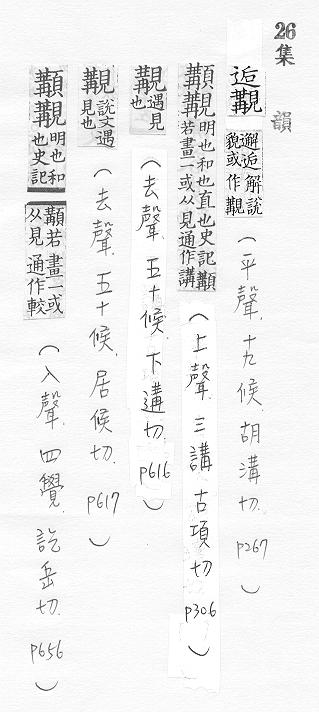 26
集韻
逅覯 邂逅解說皃或作覯（平聲．十九候．胡溝切．p267）
顜覯 明也和也直也史記顜若畫一或从見通作講（上聲．三講．古項切．p306）
覯 遇見也（去聲．五十候．下遘切．p616）
覯 說文遇見也（去聲．五十候．居候切．p617）
顜覯 明也和也史記顜若畫一或从見通作較（入聲．四覺．訖岳切．p656）